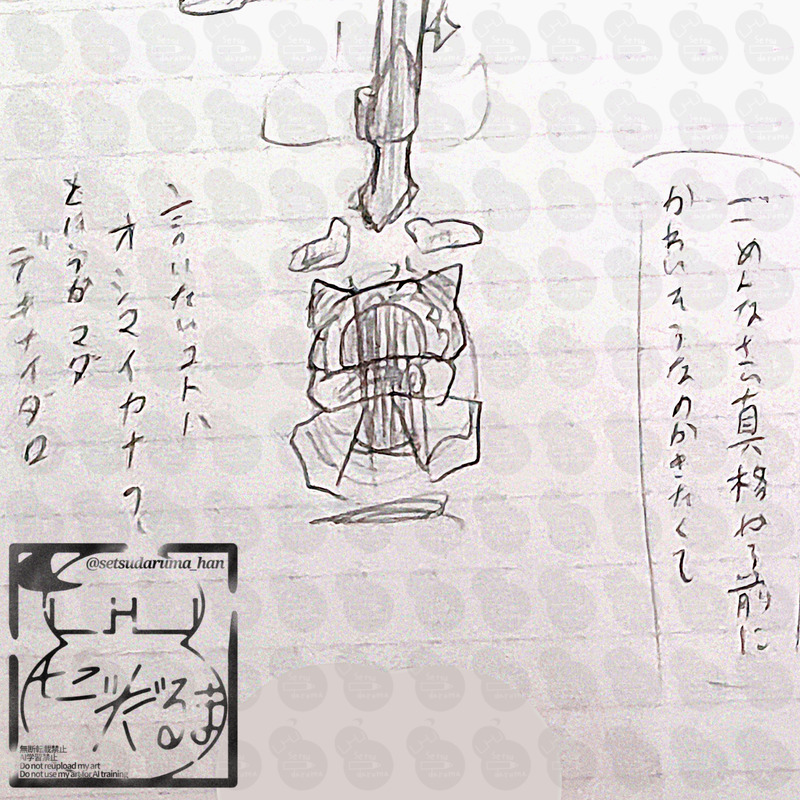 ごめんなさい真格やる前に
かわいそうなのかきたくて
言いたいコトハ
オシマイカナ?
というかマダ
デキナイダロ
@setsudaruma_han
せつだるま
無断転載禁止
AI学習禁止
Do not reupload my art
Do not use my art for AI training